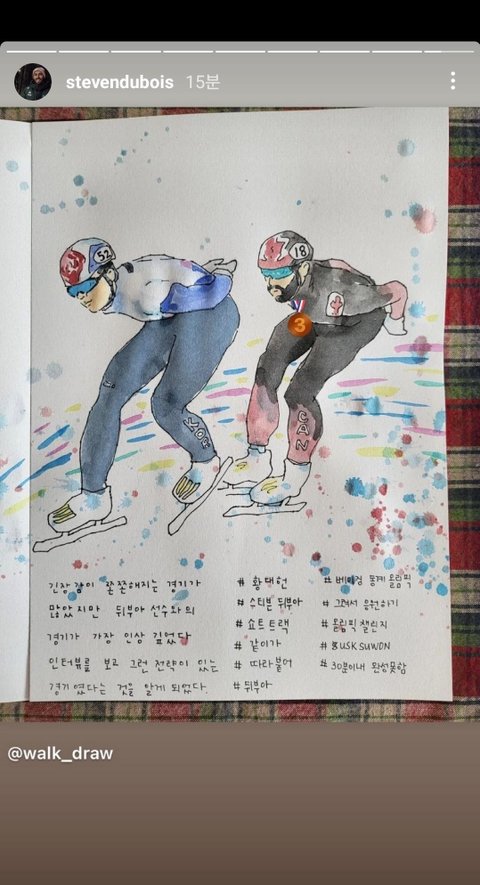 stevendubois 15분
52
18
3
KOR
CAN
긴장감이 쫀쫀해지는 경기가
많았지만 뒤부아 선수와의
경기가 가장 인상 깊었다
인터뷰를 보고 그런 전략이 있는
경기였다는 것을 알게 되었다
# 황대헌
# 스티븐 뒤부아
# 쇼트트랙
# 같이가
# 따라붙어
# 뒤부아
# 베이징 동계 올림픽
# 그려서 응원하기
# 올림픽 챌린지
# 30분이내 완성못함
@walk_draw